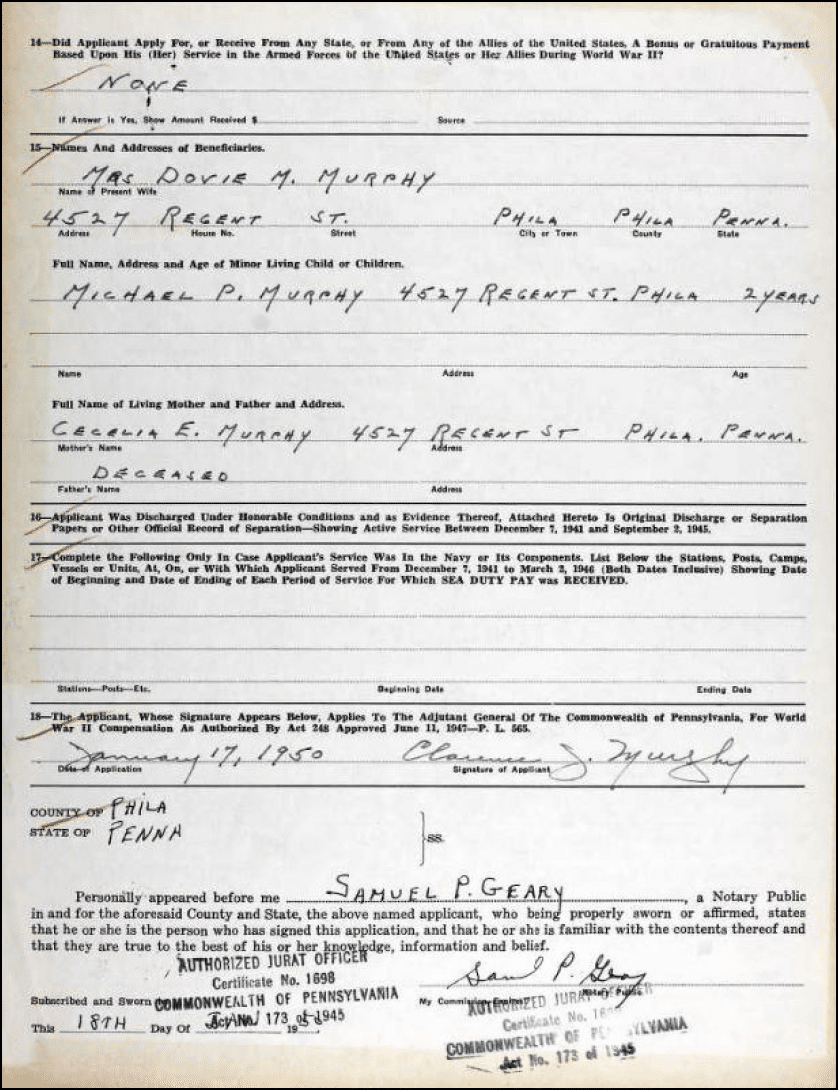 14—Did Applicant Apply For, or Receive From Any State, or From Any of the Allies of the United States, A Bonus or Gratuitous Payment
Based Upon His (Her) Service in the Armed Forces of the United States or Her Allies During World War II?
NONE
If Answer is Yes, Show Amount Received $ Source
15—Names And Addresses of Beneficiaries.
MRS DOVIE M. MURPHY
Name of Present Wife
4527 REGENT ST. PHILA PHILA PENNA.
Address House No. Street City or Town County State
Full Name, Address and Age of Minor Living Child or Children.
MICHAEL P. MURPHY 4527 REGENT ST. PHILA 2 YEARS
Name Address Age
Full Name of Living Mother and Father and Address.
CECELIA E. MURPHY 4527 REGENT ST PHILA. PENNA.
Mother's Name Address
DECEASED
Father's Name Address
16—Applicant Was Discharged Under Honorable Conditions and as Evidence Thereof, Attached Hereto Is Original Discharge or Separation
Papers or Other Official Record of Separation—Showing Active Service Between December 7, 1941 and September 2, 1945.
17—Complete the Following Only In Case Applicant's Service Was In the Navy or Its Components. List Below the Stations, Posts, Camps,
Vessels or Units, At, On, or With Which Applicant Served From December 7, 1941 to March 2, 1946 (Both Dates Inclusive) Showing Date
of Beginning and Date of Ending of Each Period of Service For Which SEA DUTY PAY was RECEIVED.
Stations—Posts—Etc. Beginning Date Ending Date
18—The Applicant, Whose Signature Appears Below, Applies To The Adjutant General Of The Commonwealth of Pennsylvania, For World
War II Compensation As Authorized By Act 248 Approved June 11, 1947—P. L. 565.
January 17, 1950 Clarence J. Murphy
Date of Application Signature of Applicant
COUNTY OF PHILA
STATE OF PENNA
ss.
Personally appeared before me SAMUEL P. GEARY, a Notary Public
in and for the aforesaid County and State, the above named applicant, who being properly sworn or affirmed, states
that he or she is the person who has signed this application, and that he or she is familiar with the contents thereof and
that they are true to the best of his or her knowledge, information and belief.
AUTHORIZED JURAT OFFICER
Certificate No. 1698
Saml P. Geary
Subscribed and Sworn COMMONWEALTH OF PENNSYLVANIA My Commission Expires Notary Public
AUTHORIZED JURAT OFFICER
This 18TH Day Of Act No. 173 of 1945 19
Certificate No.
COMMONWEALTH OF PENNSYLVANIA
Act No. 173 of 1945